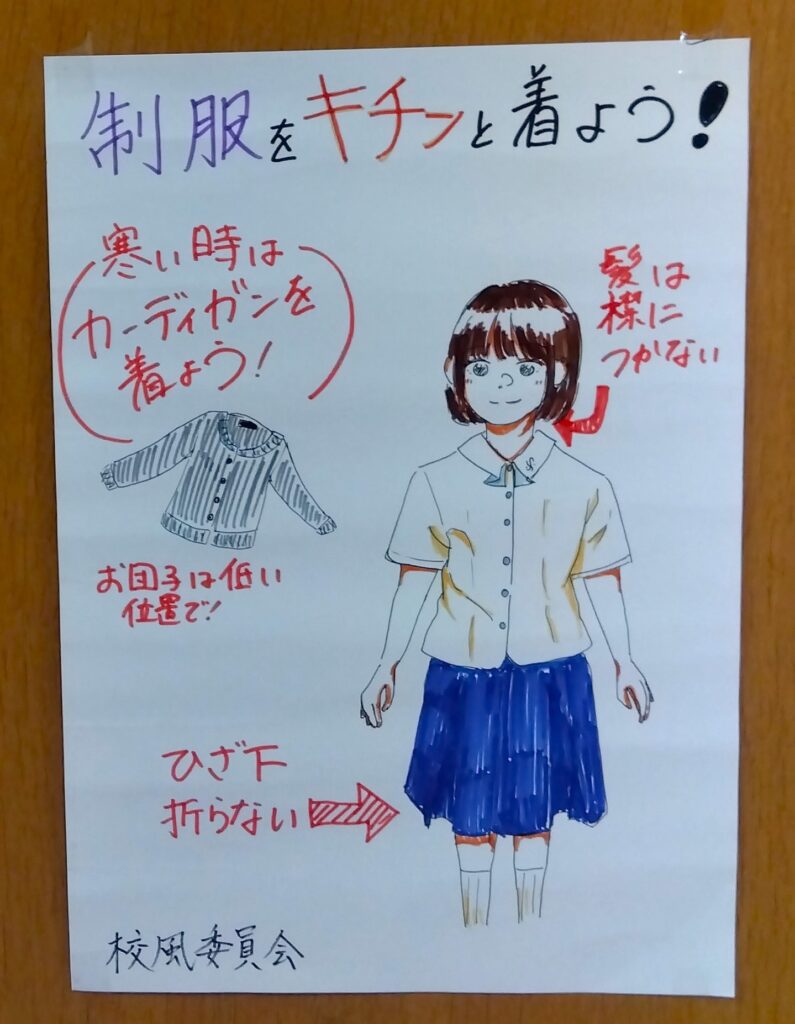 制服をキチンと着よう!
寒い時は
カーディガンを
着よう!
髪は
襟に
つかない
お団子は低い
位置で!
ひざ下
折らない
校風委員会